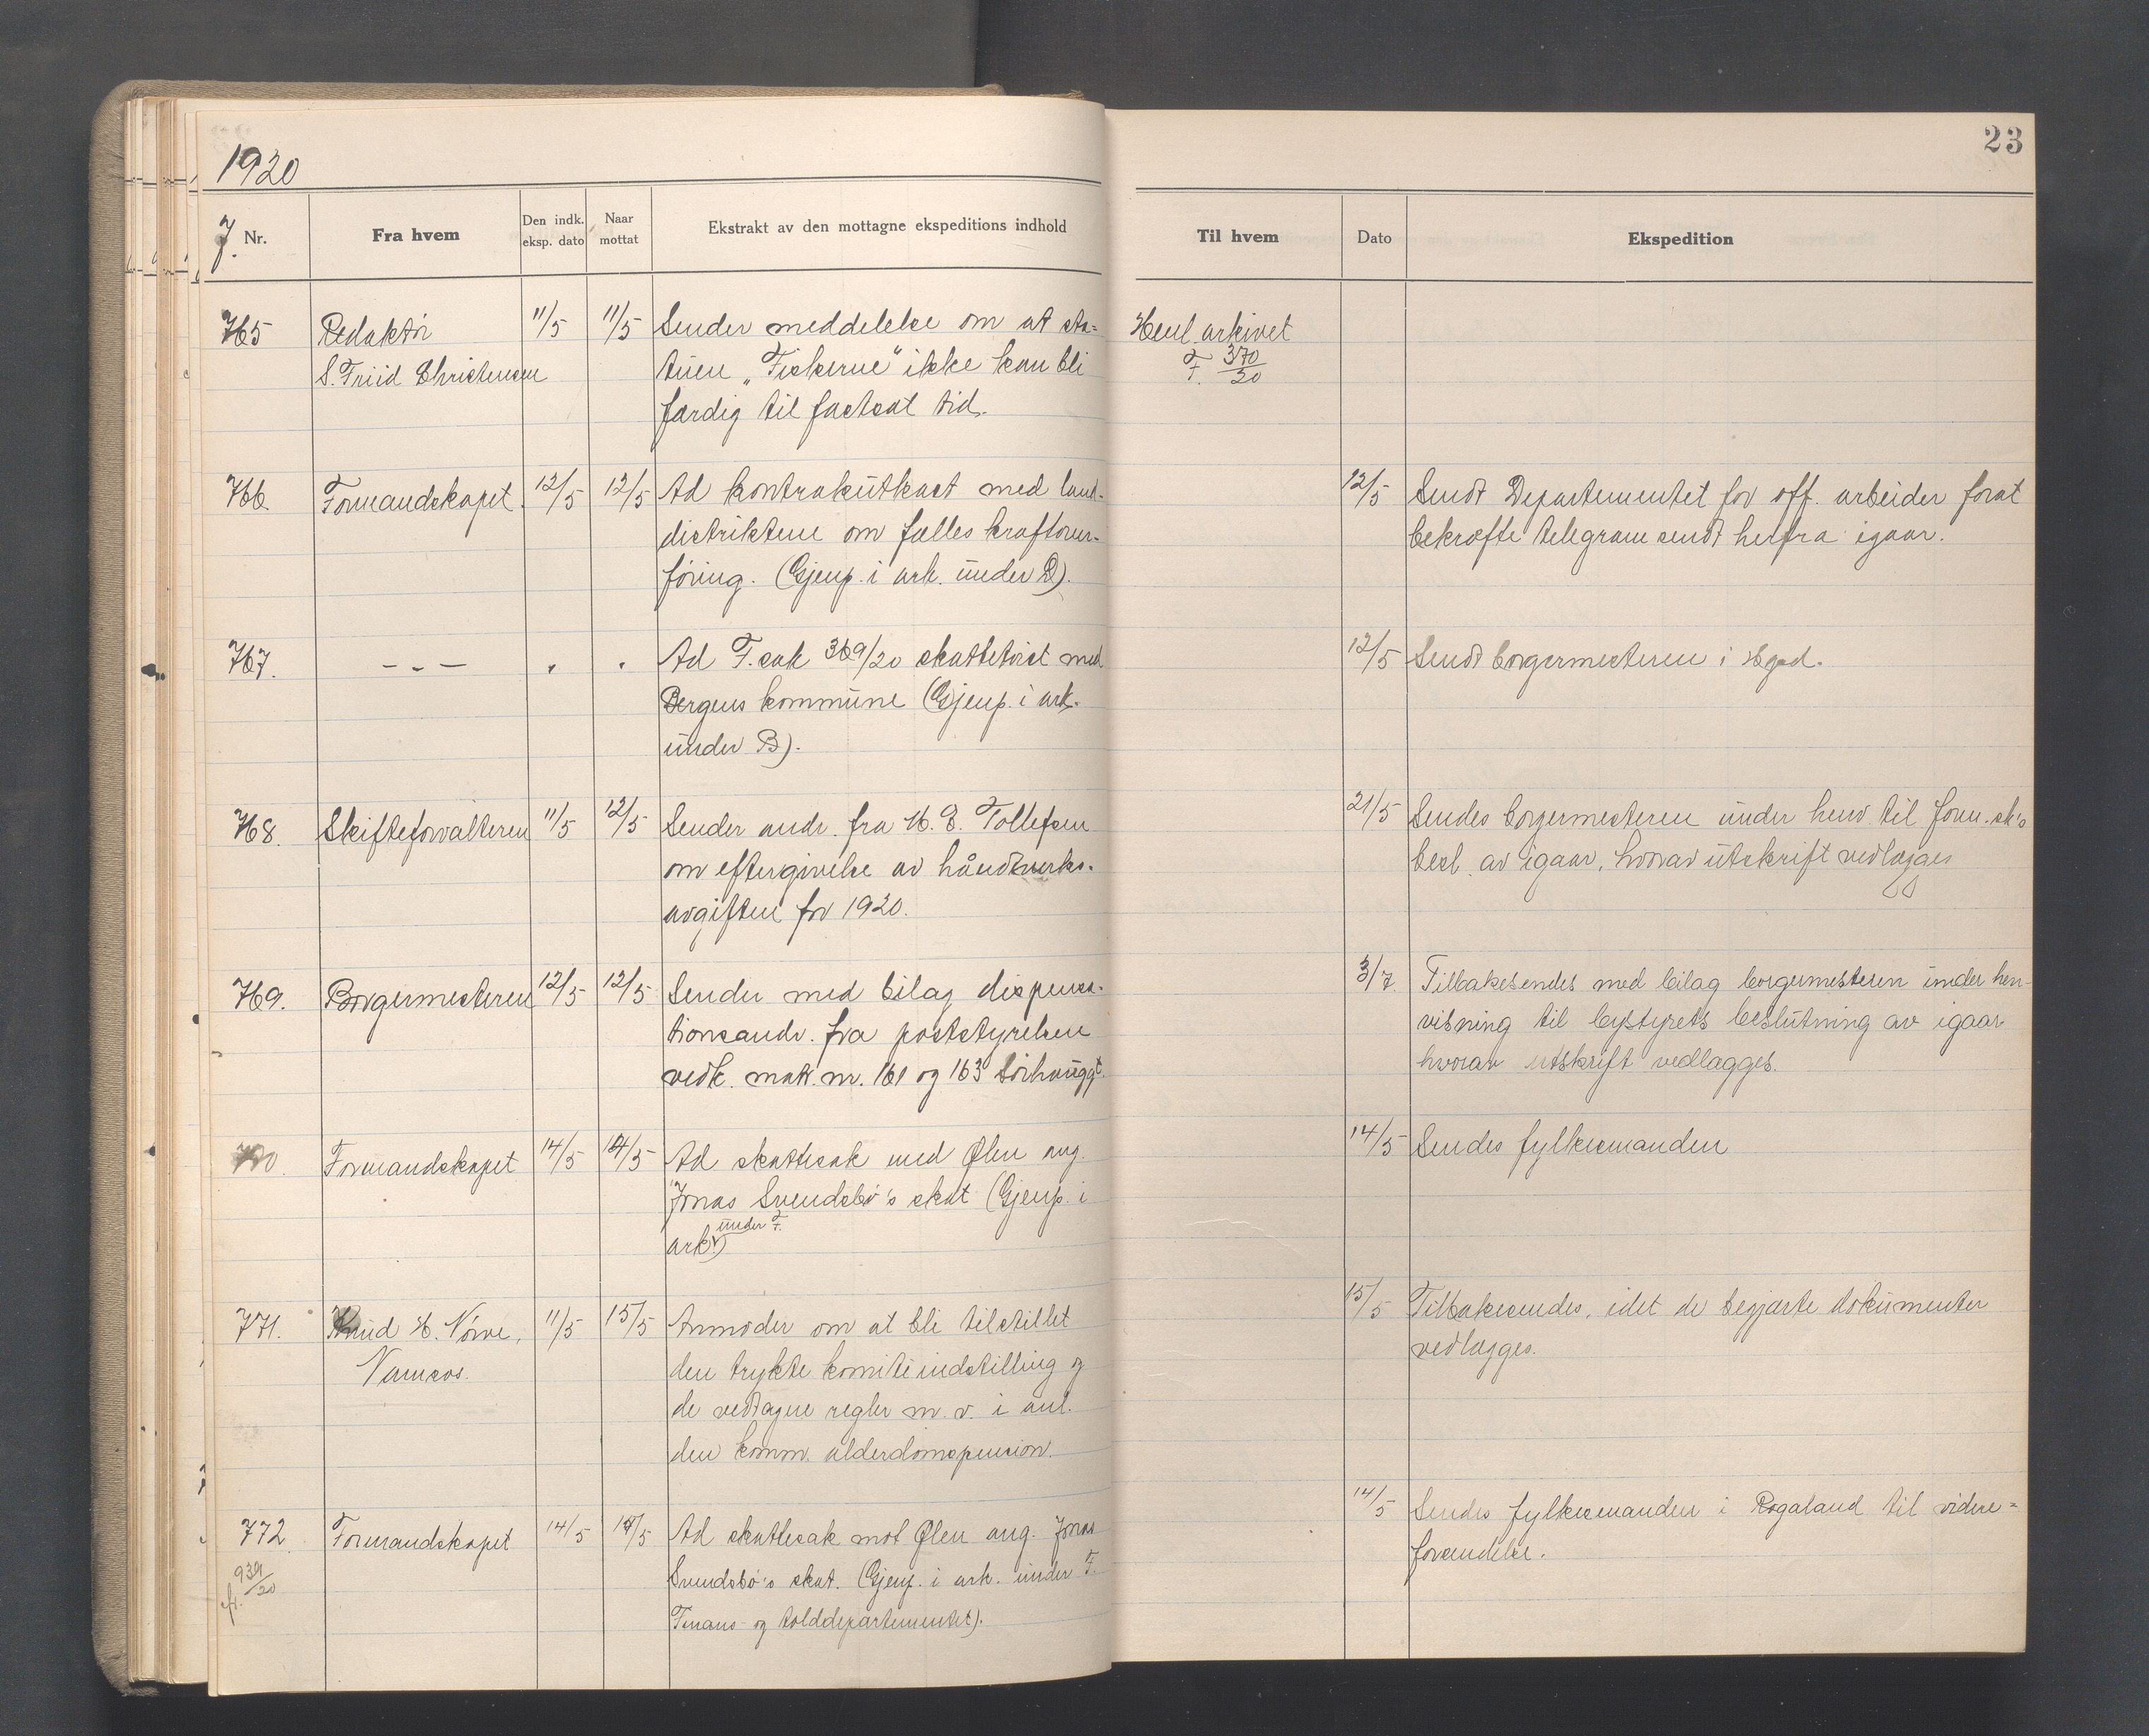 1920
23
J. Nr.
Fra hvem
Den indk. eksp. dato
Naar mottat
Ekstrakt av den mottagne ekspeditions indhold
Til hvem
Dato
Ekspedition
765
Redaktør
S. Friid Christensen
11/5
11/5
Sender meddelelse om at sta-
tuen „Fiskerne“ ikke kan bli
færdig til fastsat tid.
Henl. arkivet
F. 370/20
766
Formandskapet.
12/5
12/5
Ad kontraktutkast med land-
distriktene om fælles kraftover-
føring. (Gjenp. i ark. under D).
12/5
Sendt Departementet for off. arbeider forat
bekræfte telegram sendt herfra igaar.
767.
– – –
"
"
Ad F. sak 369/20 skattetvist med
Bergens kommune (Gjenp. i ark.
under B).
12/5
Sendt borgermesteren i Hgsd.
768.
Skifteforvalteren
11/5
12/5
Sender andr. fra M. E. Tollefsen
om eftergivelse av håndverks-
avgiften for 1920.
21/5
Sendes borgermesteren under henv. til form.sk's
besl. av igaar, hvorav utskrift vedlægges
769.
Borgermesteren
12/5
12/5
Sender med bilag dispensa-
tionsandr. fra poststyrelsen
vedk. matr. nr. 161 og 163 Sørhauggt.
3/7
Tilbakesendes med bilag borgermesteren under hen-
visning til bystyrets beslutning av igaar
hvorav utskrift vedlægges.
770.
Formandskapet
14/5
14/5
Ad skattesak med Ølen ang.
Jonas Svendsbø's skat (Gjenp. i
ark. under F.)
14/5
Sendes fylkesmanden
771.
Knud H. Nørve,
Namsos.
11/5
15/5
Anmoder om at bli tilstillet
den trykte komitéindstilling og
de vedtagne regler m. v. i anl.
den komm. alderdomspension.
15/5
Tilbakesendes, idet de begjærte dokumenter
vedlægges.
772
939/20
Formandskapet
14/5
14/5
Ad skattesak mot Ølen ang. Jonas
Svendsbø's skat. (Gjenp. i ark. under F.
Finans- og tolddepartementet).
14/5
Sendes fylkesmanden i Rogaland til videre-
forsendelse.